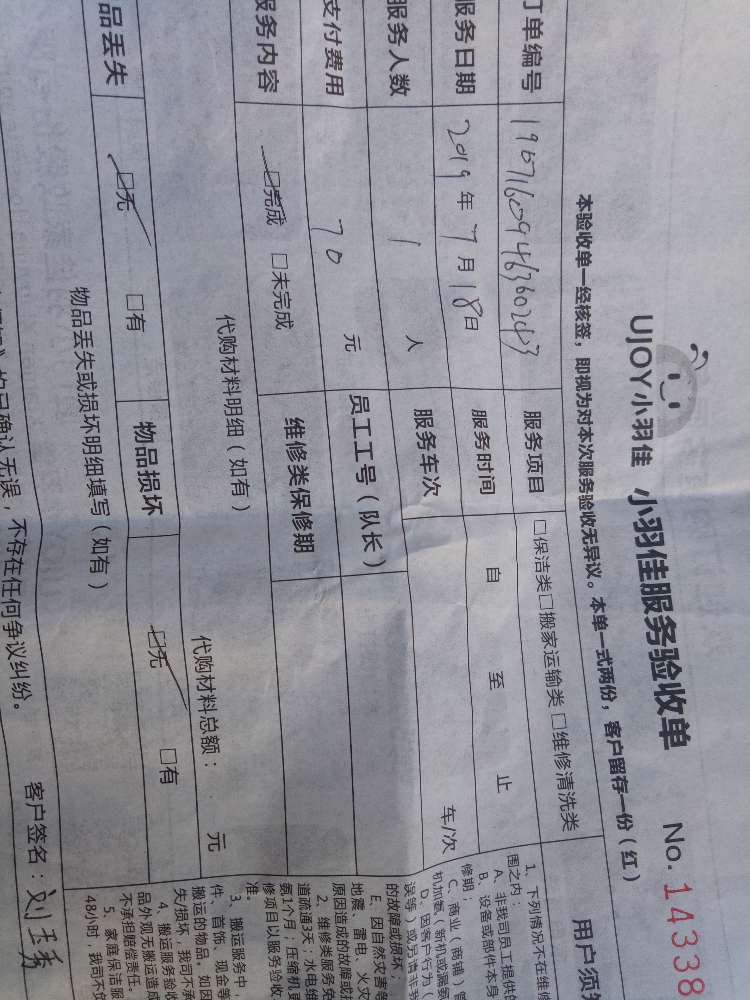 UJOY小羽佳 小羽佳服务验收单 No. 14338
本验收单一经核签，即视为对本次服务验收无异议。本单一式两份，客户留存一份（红）
订单编号 服务项目 □保洁类□搬家运输类 □维修清洗类
服务日期 2019年7月18日 服务时间 自 至 止
服务人数 1 人 服务车次 车/次
支付费用 70 元 员工工号（队长）
服务内容 □完成 □未完成 维修类保修期
代购材料明细（如有） 代购材料总额： 元
品丢失 □无 □有 物品损坏 □无 □有
物品丢失或损坏明细填写（如有）
的已确认无误，不存在任何争议纠纷。 客户签名：刘玉秀
用户须
1、下列情况不在维
围之内：
A、非我司员工提供的
B、设备或部件本身
修期；
C、商业（商铺）管
机加氨（新机或漏氨
D、因客户行为（
误等）或另请非我
的故障或损坏；
E、因自然灾害等
地震、雷电、火灾
原因造成的故障或损
2、维修类服务免
道疏通3天；水电维
氨1个月；压缩机更
修项目以服务验收
准。
3、搬运服务中，
件、首饰、现金等
搬运的物品。如因
失/损坏，我司不承
4、搬运服务验收
品外观无搬运造成
不承担赔偿责任。
5、家庭保洁服
48小时，我司不